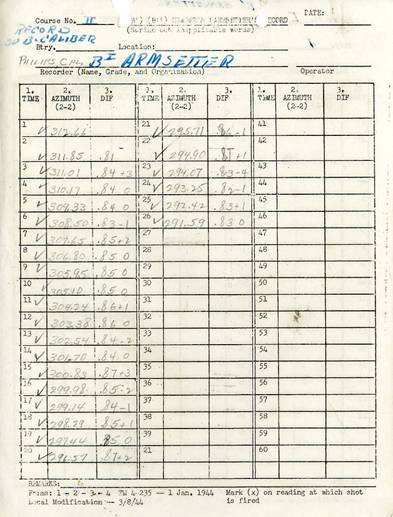 DATE:
Course No. II
RECORD
(Strike out inapplicable words)
Btry. Location:
B I ARMSETTER
Recorder (Name, Grade, and Organization) Operator
1. 2. 3. 1. 2. 3. 1. 2. 3.
TIME AZIMUTH DIF TIME AZIMUTH DIF TIME AZIMUTH DIF
(2-2) (2-2) (2-2)
1 ✓ 312.66 21 ✓ 295.71 .86-1 41
2 ✓ 311.85 .81 22 ✓ 294.90 .81+1 42
3 ✓ 311.01 .84+3 23 ✓ 294.07 .83-4 43
4 ✓ 310.17 .84 0 24 ✓ 293.25 .82-1 44
5 ✓ 309.33 .84 0 25 ✓ 292.42 .83+1 45
6 ✓ 308.50 .83-1 26 ✓ 291.59 .83 0 46
7 ✓ 307.65 .85+2 27 47
8 ✓ 306.80 .85 0 28 48
9 ✓ 305.95 .85 0 29 49
10 ✓ 305.10 .85 0 30 50
11 ✓ 304.24 .86+1 31 51
12 ✓ 303.38 .86 0 32 52
13 ✓ 302.54 .84-2 33 53
14 ✓ 301.70 .84 0 34 54
15 ✓ 300.83 .87+3 35 55
16 ✓ 299.98 .85-2 36 56
17 ✓ 299.14 .84-1 37 57
18 ✓ 298.29 .85+1 38 58
19 ✓ 297.44 .85 0 39 59
20 ✓ 296.57 .87+2 40 60
REMARKS:
Forms: 1 - 2 - 3 - 4 TM 4-235 - 1 Jan. 1944 Mark (x) on reading at which shot
Local Modification - 3/8/44 is fired